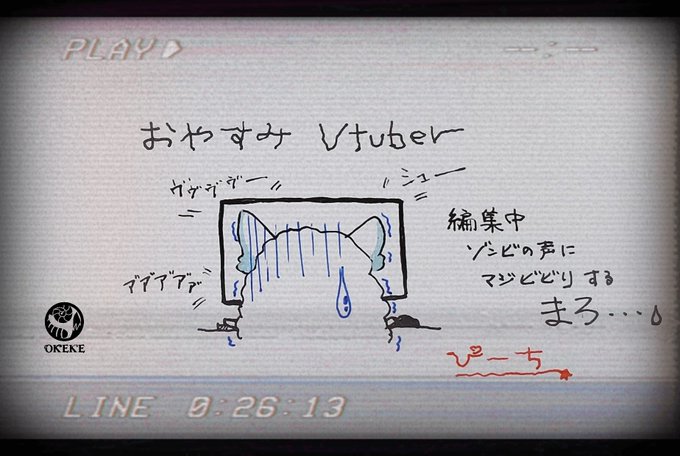 PLAY
--:--
おやすみ Vtuber
ヴヴヴヴー
シュー
編集中
ゾンビの声に
マジビビリする
まろ…
ブブブブブ
OKEKE
ぴーち
LINE 0:26:13